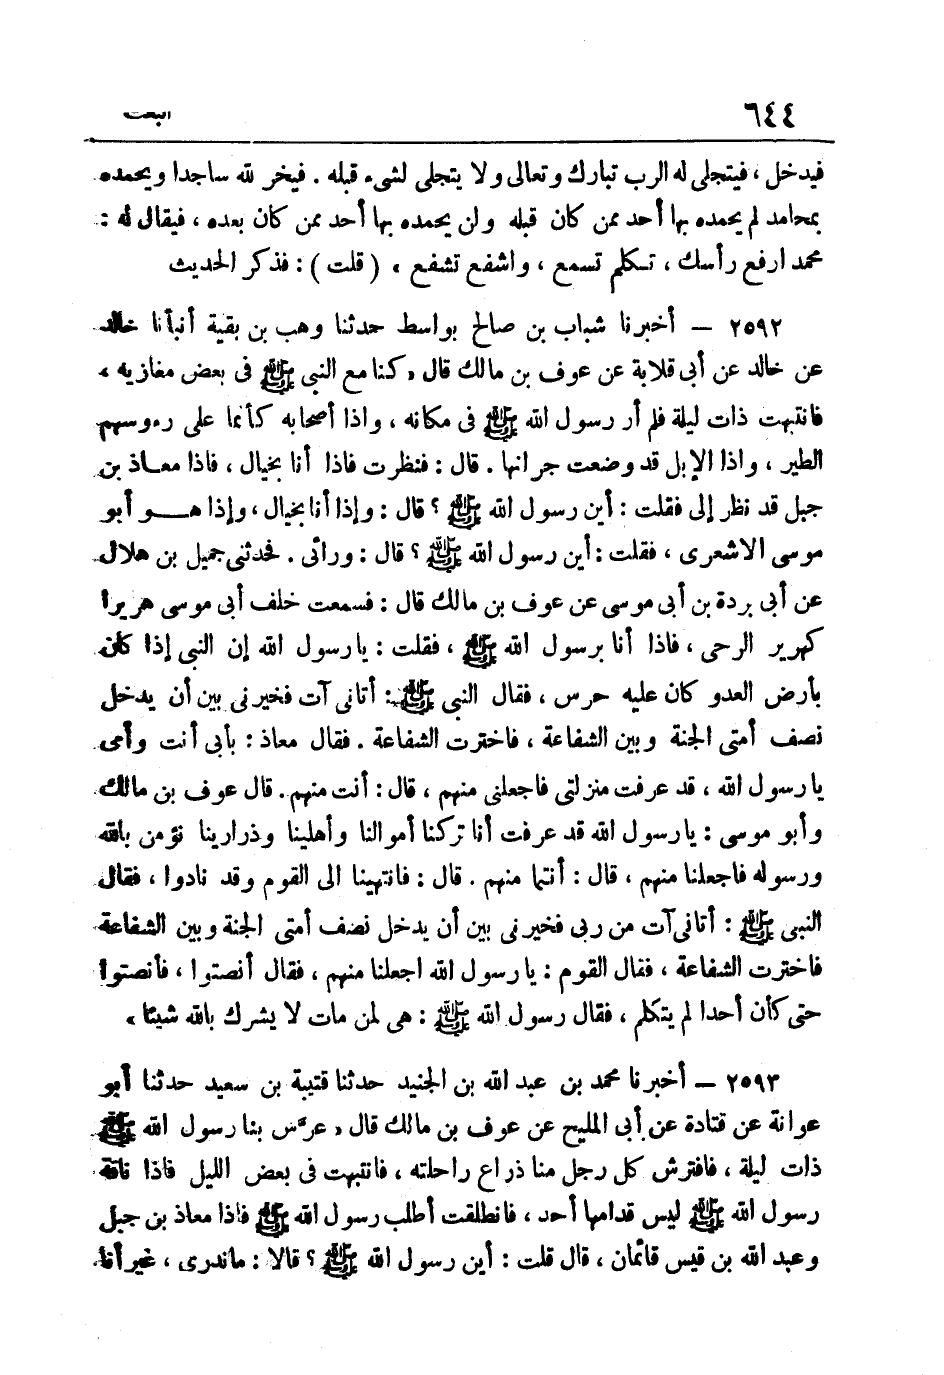 ٦٤٤
البعث
فيدخل ، فيتجلى له الرب تبارك وتعالى ولا يتجلى لشىء قبله . فيخر لله ساجدا ويحمده
بمحامد لم يحمده بها أحد ممن كان قبله ولن يحمده بها أحد ممن كان بعده ، فيقال له :
محمد ارفع رأسك ، تكلم تسمع ، واشفع تشفع » ( قلت ) : فذكر الحديث
٢٥٩٢ — أخبرنا شباب بن صالح بواسط حدثنا وهب بن بقية أنبأنا خالد
عن خالد عن أبى قلابة عن عوف بن مالك قال « كنا مع النبى ﷺ فى بعض مغازيه ،
فانتبهت ذات ليلة فلم أر رسول الله ﷺ فى مكانه ، واذا أصحابه كأنما على رءوسهم
الطير ، واذا الإبل قد وضعت جرانها . قال : فنظرت فاذا أنا بخيال ، فاذا معاذ بن
جبل قد نظر إلى فقلت : أين رسول الله ﷺ ؟ قال : وإذا أنا بخيال ، وإذا هو أبو
موسى الاشعرى ، فقلت : أين رسول الله ﷺ ؟ قال : ورائى . فحدثنى جميل بن هلال
عن أبى بردة بن أبى موسى عن عوف بن مالك قال : فسمعت خلف أبى موسى هريرا
كهرير الرحى ، فاذا أنا برسول الله ﷺ ، فقلت : يا رسول الله إن النبى إذا كان
بأرض العدو كان عليه حرس ، فقال النبى ﷺ : أتانى آت فخيرنى بين أن يدخل
نصف أمتى الجنة وبين الشفاعة ، فاخترت الشفاعة . فقال معاذ : بأبى أنت وأمى
يا رسول الله ، قد عرفت منزلتى فاجعلنى منهم ، قال : أنت منهم . قال عوف بن مالك
وأبو موسى : يا رسول الله قد عرفت أنا تركنا أموالنا وأهلينا وذرارينا نؤمن بالله
ورسوله فاجعلنا منهم ، قال : أنتما منهم . قال : فانتهينا الى القوم وقد نادوا ، فقال
النبى ﷺ : أتانى آت من ربى فخيرنى بين أن يدخل نصف أمتى الجنة وبين الشفاعة
فاخترت الشفاعة ، فقال القوم : يا رسول الله اجعلنا منهم ، فقال أنصتوا ، فأنصتوا
حتى كأن أحدا لم يتكلم ، فقال رسول الله ﷺ : هى لمن مات لا يشرك بالله شيئا »
٢٥٩٣ — أخبرنا محمد بن عبد الله بن الجنيد حدثنا قتيبة بن سعيد حدثنا أبو
عوانة عن قتادة عن أبى المليح عن عوف بن مالك قال « عرّس بنا رسول الله ﷺ
ذات ليلة ، فافترش كل رجل منا ذراع راحلته ، فانتبهت فى بعض الليل فاذا ناقة
رسول الله ﷺ ليس قدامها أحد ، فانطلقت أطلب رسول الله ﷺ فاذا معاذ بن جبل
وعبد الله بن قيس قائمان ، قال قلت : أين رسول الله ﷺ ؟ قالا : ماندرى ، غير أنا